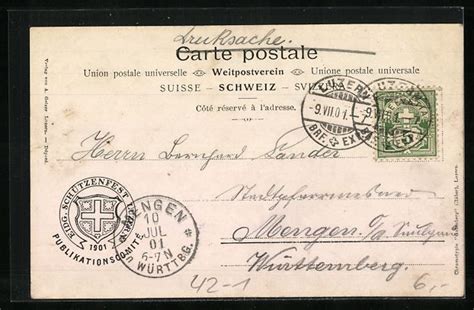 Drucksache.
Carte postale
Union postale universelle Weltpostverein Unione postale universale
SUISSE SCHWEIZ SVIZ
Côté réservé à l'adresse.
LUZERN
-9.VII.01.
BRF. EXP.
HELVETIA
Herrn Bernhard Sander
Stadtpfarrmesner
Mengen
Württemberg.
EIDG. SCHÜTZENFEST LUZERN
1901
PUBLIKATIONSCOMITÉ
MENGEN
10
JUL
01
6-7N
WÜRTTBG.
42-1
6,-
Verlag von A. Gelzer Luzern. — Déposé.